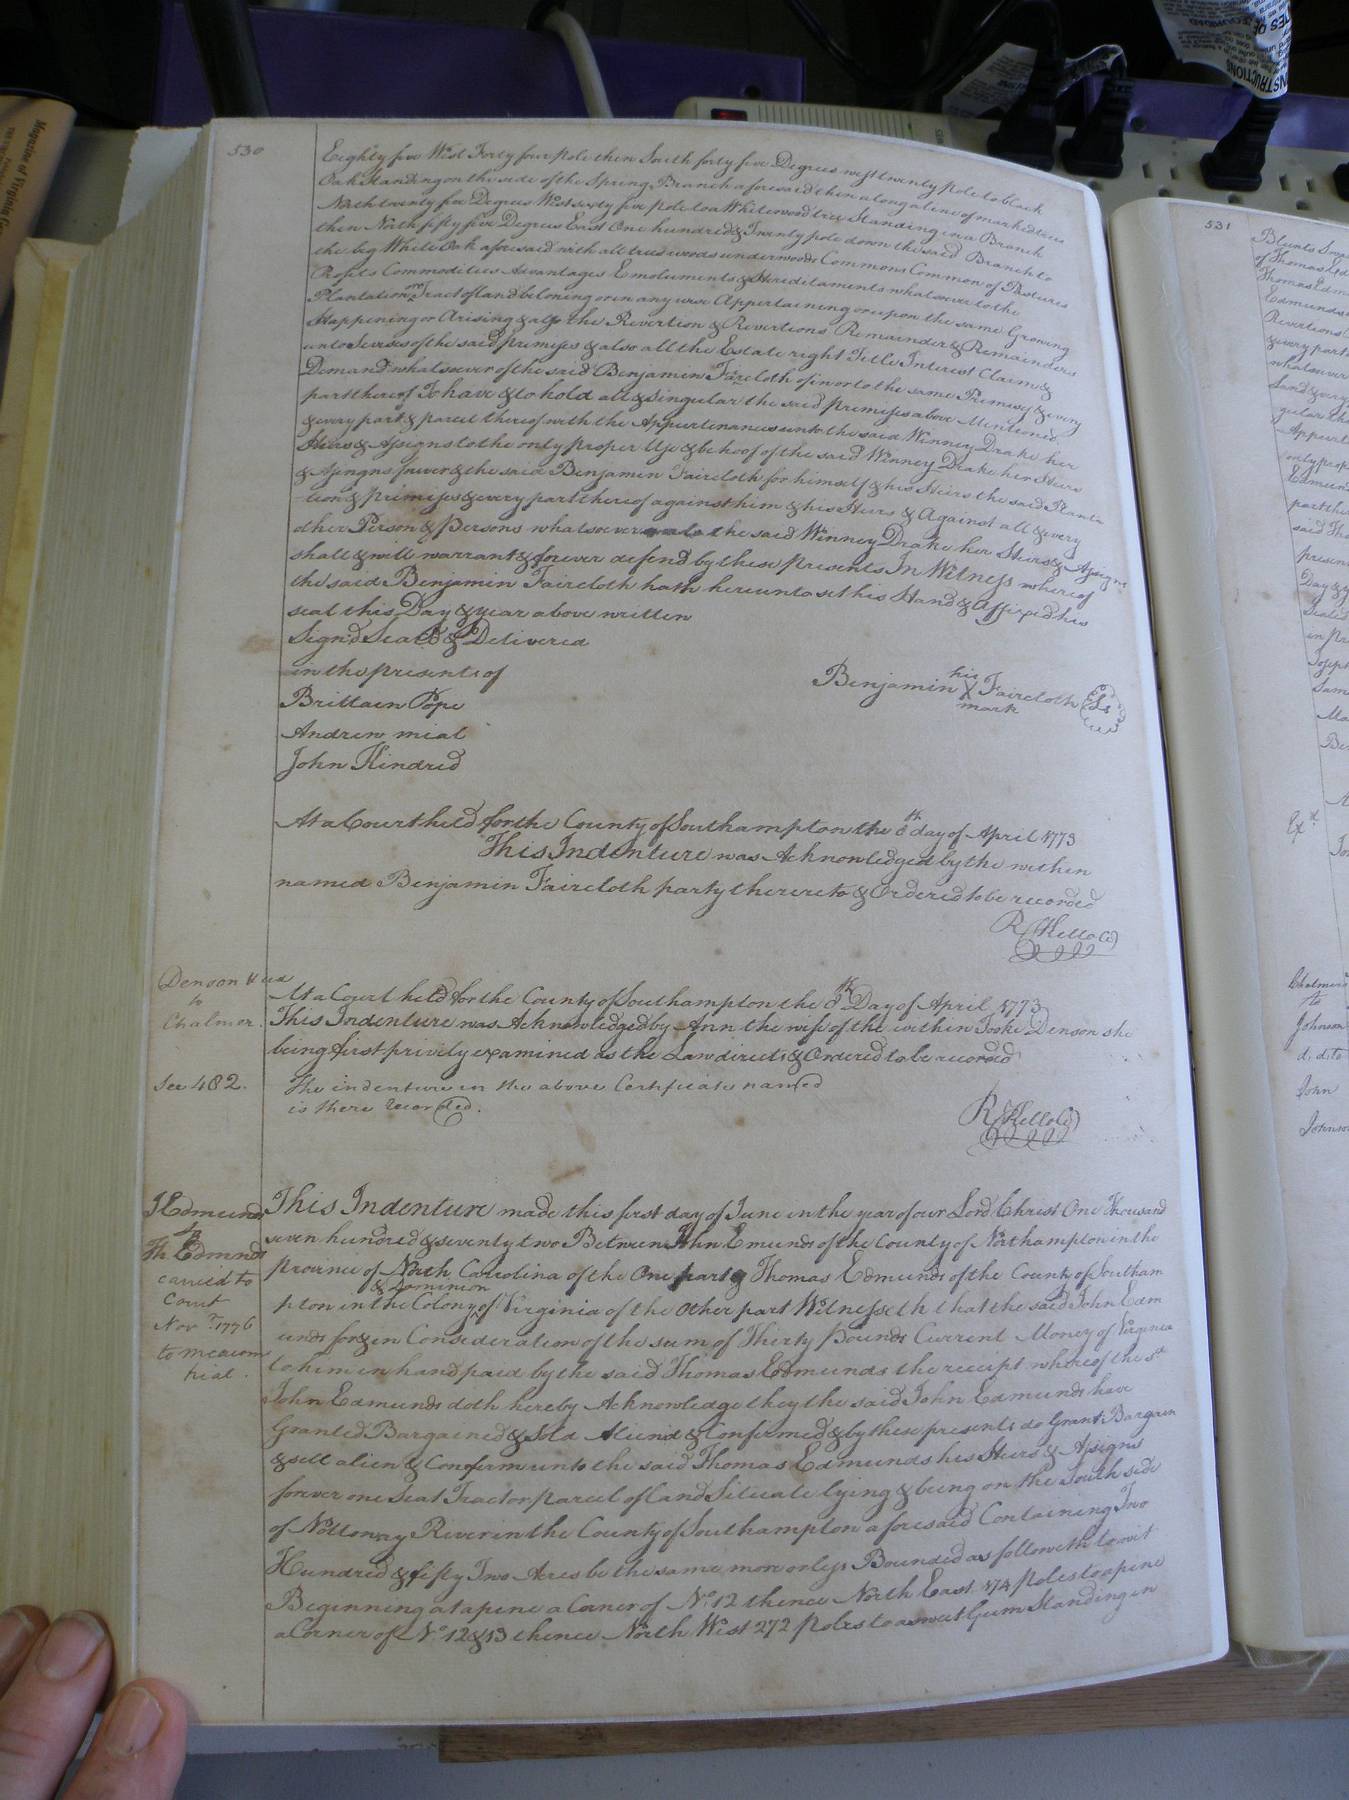 530
Eighty five West Forty four pole then South forty five Degrees west twenty pole to black
Oak Standing on the side of the Spring Branch aforesaid then along a line of marked trees
North twenty five Degrees West sixty five pole to a Whitewood tree Standing in a Branch
then North fifty five Degrees East One hundred & Twenty pole down the said Branch to
the big White Oak aforesaid with all trees woods underwoods Commons Common of Pastures
Profits Commodities Advantages Emoluments & Hereditaments whatsoever to the
Plantation or Tract of land beloning or in any wise Appertaining or upon the same Growing
Happening or Arising & also the Revertion & Revertions Remainder & Remainders
unto Issues of the said premises & also all the Estate right Title Interest Claim &
Demand whatsoever of the said Benjamin Faircloth of in or to the same Premises & every
part thereof To have & to hold all & Singular the said premises above Mentioned
& every part & parcel thereof with the Appurtinances unto the said Winney Drake her
Heirs & Assigns to the only proper Use & behoof of the said Winney Drake her Heirs
& Assingns forever & the said Benjamin Faircloth for himself & his Heirs the said Planta
-tion & premises & every part thereof against him & his Heirs & Against all & every
other Person & Persons whatsoever the said Winney Drake her Heirs & Assigns
shall & will warrant & forever defend by these presents In Witness whereof
the said Benjamin Faircloth hath hereunto set his Hand & Affixed his
seal this Day & year above written
Sign'd Seal'd & Delivered
in the presents of
Brittain Pope
Andrew mial
John Kindred
his
Benjamin X Faircloth Ls
mark
At a Court held for the County of Southampton the 8th day of April 1773
This Indenture was Acknowledged by the within
named Benjamin Faircloth party thereto & Ordered to be recorded
R Kello Cl
Denson & ux
to
Chalmer.
At a Court held for the County of Southampton the 8th Day of April 1773
This Indenture was Acknowledged by Ann the wife of the within Tooke Denson she
being first privily examined as the Law directs & Ordered to be recorded
See 482.
The indenture in the above Certificate named
is there Recorded.
R Kello Cl
J Edmunds
to
Th. Edmnds
carried to
Court
Nov r. 1776
to mecom
trial.
This Indenture made this first day of June in the year of our Lord Christ One Thousand
seven hundred & seventy two Between John Emunds of the County of Northampton in the
province of North Carrolina of the One part & Thomas Edmunds of the County of Southam
& Dominion
pton in the Colony of Virginia of the Other part Witnesseth that the said John Edm
unds for & in Consideration of the sum of Thirty Pounds Current Money of Virginia
to him in hand paid by the said Thomas Edmunds the receipt whereof the sd
John Edmunds doth hereby Acknowledge they the said John Edmunds have
Granted Bargained & Sold Aliend & Confirmed & by these presents do Grant Bargain
& sell alien & Confirm unto the said Thomas Edmunds his Heirs & Assigns
forever one Seat Tract or parcel of Land Situate lying & being on the South side
of Nottoway River in the County of Southampton aforesaid Containing Two
Hundred & fifty Two Acres be the same more or less Bounded as followeth to wit
Beginning at a pine a Corner of No. 12 thence North East 174 Poles to a pine
a Corner of No. 12 & 13 thence North West 272 Poles to a sweet Gum Standing in
531
Blunts Swa
of Thomas Ed
Thomas Edm
Edmunds
Revertions
& every part
whatsoever
Land & every
gular the
Appurt
only prop
Edmun
part the
said Tho
present
Day & y
Sealed
in pr
Sam
Ma
Ben
Ex d.
Chalmers
to
Johnson
d. d. to
John
Johnson
Magazine of Virginia Ge
INSTRUCTIONS